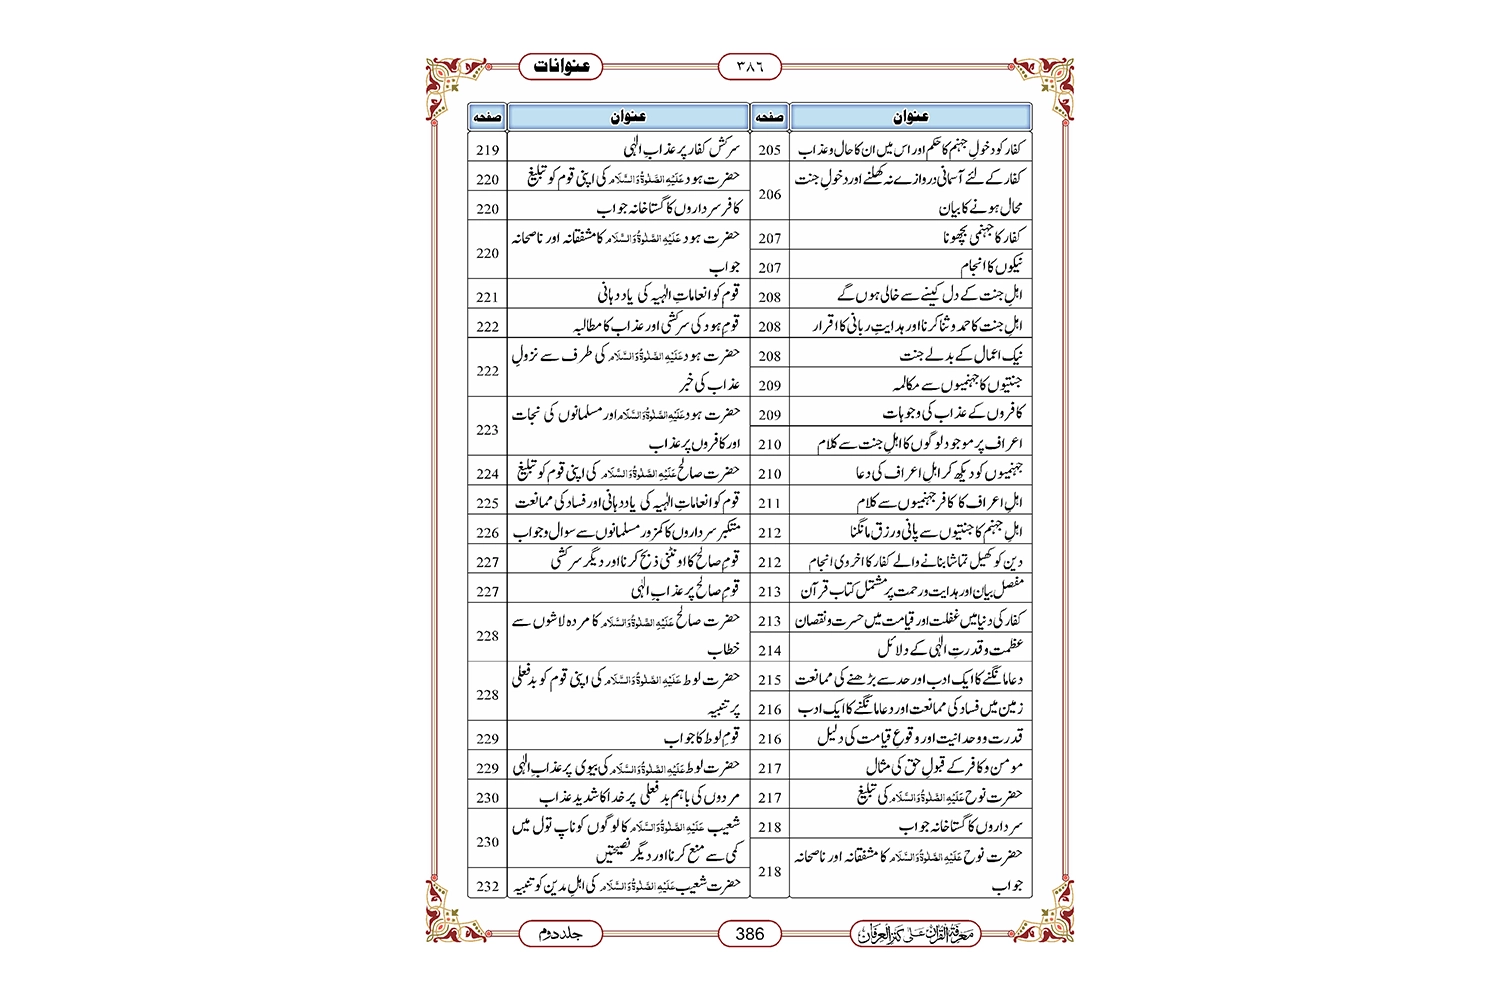 عنوانات
٣٨٦
عنوان صفحہ
کفار کو دخولِ جہنم کا حکم اور اس میں ان کا حال و عذاب 205
کفار کے لئے آسمانی دروازے نہ کھلنے اور دخولِ جنت
محال ہونے کا بیان 206
کفار کا جہنمی بچھونا 207
نیکوں کا انجام 207
اہلِ جنت کے دل کینے سے خالی ہوں گے 208
اہلِ جنت کا حمد و ثنا کرنا اور ہدایتِ ربانی کا اقرار 208
نیک اعمال کے بدلے جنت 208
جنتیوں کا جہنمیوں سے مکالمہ 209
کافروں کے عذاب کی وجوہات 209
اعراف پر موجود لوگوں کا اہلِ جنت سے کلام 210
جہنمیوں کو دیکھ کر اہلِ اعراف کی دعا 210
اہلِ اعراف کا کافر جہنمیوں سے کلام 211
اہلِ جہنم کا جنتیوں سے پانی و رزق مانگنا 212
دین کو کھیل تماشا بنانے والے کفار کا اخروی انجام 212
مفصل بیان اور ہدایت و رحمت پر مشتمل کتاب قرآن 213
کفار کی دنیا میں غفلت اور قیامت میں حسرت و نقصان 213
عظمت و قدرتِ الٰہی کے دلائل 214
دعا مانگنے کا ایک ادب اور حد سے بڑھنے کی ممانعت 215
زمین میں فساد کی ممانعت اور دعا مانگنے کا ایک ادب 216
قدرت و وحدانیت اور وقوعِ قیامت کی دلیل 216
مومن و کافر کے قبولِ حق کی مثال 217
حضرت نوح عَلَیْہِ الصَّلٰوۃُ وَالسَّلَام کی تبلیغ 217
سرداروں کا گستاخانہ جواب 218
حضرت نوح عَلَیْہِ الصَّلٰوۃُ وَالسَّلَام کا مشفقانہ اور ناصحانہ
جواب 218
عنوان صفحہ
سرکش کفار پر عذابِ الٰہی 219
حضرت ہود عَلَیْہِ الصَّلٰوۃُ وَالسَّلَام کی اپنی قوم کو تبلیغ 220
کافر سرداروں کا گستاخانہ جواب 220
حضرت ہود عَلَیْہِ الصَّلٰوۃُ وَالسَّلَام کا مشفقانہ اور ناصحانہ
جواب 220
قوم کو انعاماتِ الٰہیہ کی یاد دہانی 221
قومِ ہود کی سرکشی اور عذاب کا مطالبہ 222
حضرت ہود عَلَیْہِ الصَّلٰوۃُ وَالسَّلَام کی طرف سے نزولِ
عذاب کی خبر 222
حضرت ہود عَلَیْہِ الصَّلٰوۃُ وَالسَّلَام اور مسلمانوں کی نجات
اور کافروں پر عذاب 223
حضرت صالح عَلَیْہِ الصَّلٰوۃُ وَالسَّلَام کی اپنی قوم کو تبلیغ 224
قوم کو انعاماتِ الٰہیہ کی یاد دہانی اور فساد کی ممانعت 225
متکبر سرداروں کا کمزور مسلمانوں سے سوال و جواب 226
قومِ صالح کا اونٹنی ذبح کرنا اور دیگر سرکشی 227
قومِ صالح پر عذابِ الٰہی 227
حضرت صالح عَلَیْہِ الصَّلٰوۃُ وَالسَّلَام کا مردہ لاشوں سے
خطاب 228
حضرت لوط عَلَیْہِ الصَّلٰوۃُ وَالسَّلَام کی اپنی قوم کو بدفعلی
پر تنبیہ 228
قومِ لوط کا جواب 229
حضرت لوط عَلَیْہِ الصَّلٰوۃُ وَالسَّلَام کی بیوی پر عذابِ الٰہی 229
مردوں کی باہم بدفعلی پر خدا کا شدید عذاب 230
شعیب عَلَیْہِ الصَّلٰوۃُ وَالسَّلَام کا لوگوں کو ناپ تول میں
کمی سے منع کرنا اور دیگر نصیحتیں 230
حضرت شعیب عَلَیْہِ الصَّلٰوۃُ وَالسَّلَام کی اہلِ مدین کو تنبیہ 232
معرفۃ القرآن علیٰ کنز العرفان
386
جلد دوم